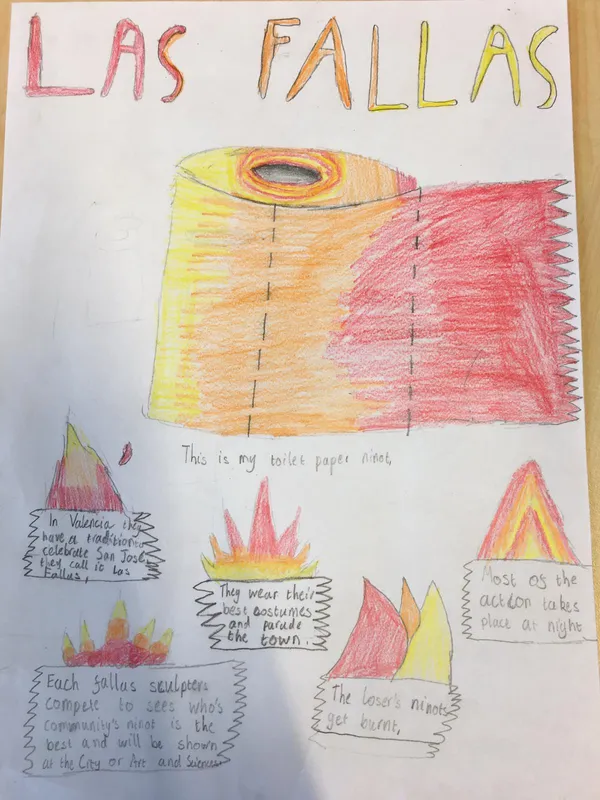 LAS FALLAS
This is my toilet paper ninot,
In Valencia they
have a tradition to
celebrate San José
they call it Las
Fallas,
They wear their
best costumes
and parade
the town.
Most of the
action takes
place at night
Each fallas sculpters
compete to sees who's
community's ninot is the
best and will be shown
at the City or Art and Sciences.
The loser's ninots
get burnt,